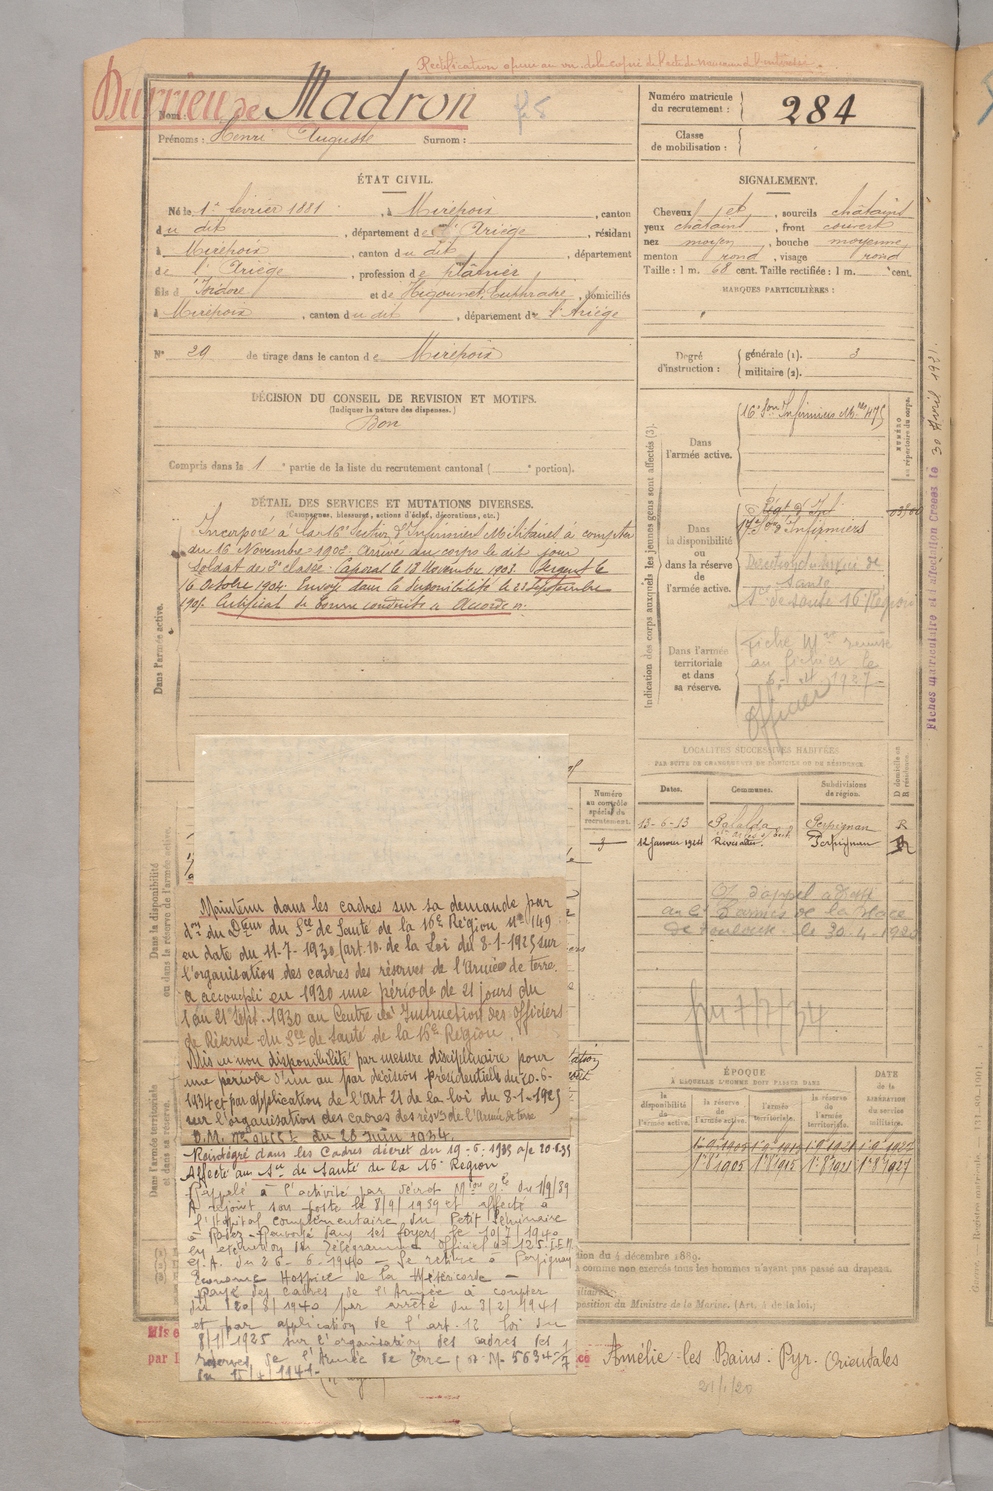 Rectification
Durrieu de Madron
Nom :
Prénoms : Henri Auguste Surnom :
Numéro matricule du recrutement : 284
Classe de mobilisation :
ÉTAT CIVIL.
Né le 1er février 1881, à Mirepoix, canton
du dit, département de l'Ariège, résidant
à Mirepoix, canton du dit, département
de l'Ariège, profession de plâtrier
fils d'Isidore et de Higounet, Euphrasie, domiciliés
à Mirepoix, canton du dit, département de l'Ariège
N° 29 de tirage dans le canton de Mirepoix
SIGNALEMENT.
Cheveux et, sourcils châtains
yeux châtains, front couvert
nez moyen, bouche moyenne,
menton rond, visage rond
Taille : 1 m. 68 cent. Taille rectifiée : 1 m. cent.
MARQUES PARTICULIÈRES :
Degré d'instruction : générale (1). 3
militaire (2).
DÉCISION DU CONSEIL DE REVISION ET MOTIFS.
(Indiquer la nature des dispenses.)
Bon
Compris dans la 1e partie de la liste du recrutement cantonal ( e portion).
DÉTAIL DES SERVICES ET MUTATIONS DIVERSES.
(Campagnes, blessures, actions d'éclat, décorations, etc.)
Incorporé à la 16e Section d'Infirmiers Militaires à compter
du 16 Novembre 1902. Arrivé au corps le dit jour
Soldat de 2e classe. Caporal le 18 Novembre 1903. Sergent le
16 Octobre 1904. Envoyé dans la disponibilité le 23 Septembre
1905. Certificat de bonne conduite « Accordé ».
Dans l'armée active.
Dans la disponibilité ou dans la réserve de l'armée active.
Dans l'armée territoriale et dans sa réserve.
Indication des corps auxquels les jeunes gens sont affectés (3).
NUMÉRO au répertoire du corps.
Dans l'armée active.
16e Son Infirmiers Mle 475
Dans la disponibilité ou dans la réserve de l'armée active.
Régt d'Inf
17e Son d'Infirmiers
Direction du Service de
Santé
Sce de Santé 16e Région
Dans l'armée territoriale et dans sa réserve.
Fiche Mle remise
au fichier le
1927
Officier
Fiches matriculaire et d'affectation Créées le 30 Avril 1931.
LOCALITÉS SUCCESSIVES HABITÉES
PAR SUITE DE CHANGEMENTS DE DOMICILE OU DE RÉSIDENCE.
Dates. Communes. Subdivisions de région. D domicile ou R résidence.
13-6-13 Palalda Perpignan R
12 Janvier 1924 Rivesaltes Perpignan R
O. d'appel
de la Place
de Toulouse le 30.4.1920
Numéro au contrôle spécial du recrutement.
ÉPOQUE
À LAQUELLE L'HOMME DOIT PASSER DANS
DATE de la LIBÉRATION du service militaire.
la disponibilité de l'armée active. la réserve de l'armée active. l'armée territoriale. la réserve de l'armée territoriale.
1er 8e 1905 1er 8e 1915 1er 8e 1921 1er 8e 1927
Maintenu dans les cadres sur sa demande par
don du Dteur du Sce de Santé de la 16e Région N° 149
en date du 11-7-1930 (art. 10. de la Loi du 8-1-1925 sur
l'organisation des cadres des réserves de l'Armée de terre.
a accompli en 1930 une période de 21 jours du
1 au 21 Sept. 1930 au Centre de Instruction des Officiers
de Réserve du Sce de Santé de la 16e Région.
Mis en non disponibilité par mesure disciplinaire pour
une période d'un an par décision présidentielle du 20-6-
1934 et par application de l'art 21 de la loi du 8-1-1925
sur l'organisation des cadres des résves de l'Armée de terre
D.M. du 28 Juin 1934.
Réintégré dans les Cadres décret du 19-6-1935 a/c 20.6.35
Affecté au Sce de Santé de la 16e Région
Rappelé à l'activité par décret Mion Gle du 1/9/39
A rejoint son poste le 8/9/1939 et affecté à
l'hôpital complémentaire du Petit Séminaire
à Rodez - Renvoyé dans ses foyers le 10/7/1940
en exécution du Télégramme Officiel
E.A. du 26-6-1940 - Se retire à Perpignan
Econome Hospice de la Miséricorde -
Rayé des cadres de l'Armée à compter
du 20/8/1940 par arrêté du 3/2/1941
et par application de l'art. 12 loi du
8/1/1925 sur l'organisation des cadres des
réserves de l'Armée de Terre
tion du 4 décembre 1889.
comme non exercés tous les hommes n'ayant pas passé au drapeau.
position du Ministre de la Marine. (Art. 4 de la loi.)
Amélie-les-Bains. Pyr. Orientales
21/1/20